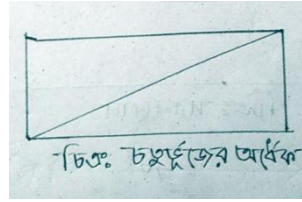 চিত্রঃ চতুর্ভূজের অর্ধেক